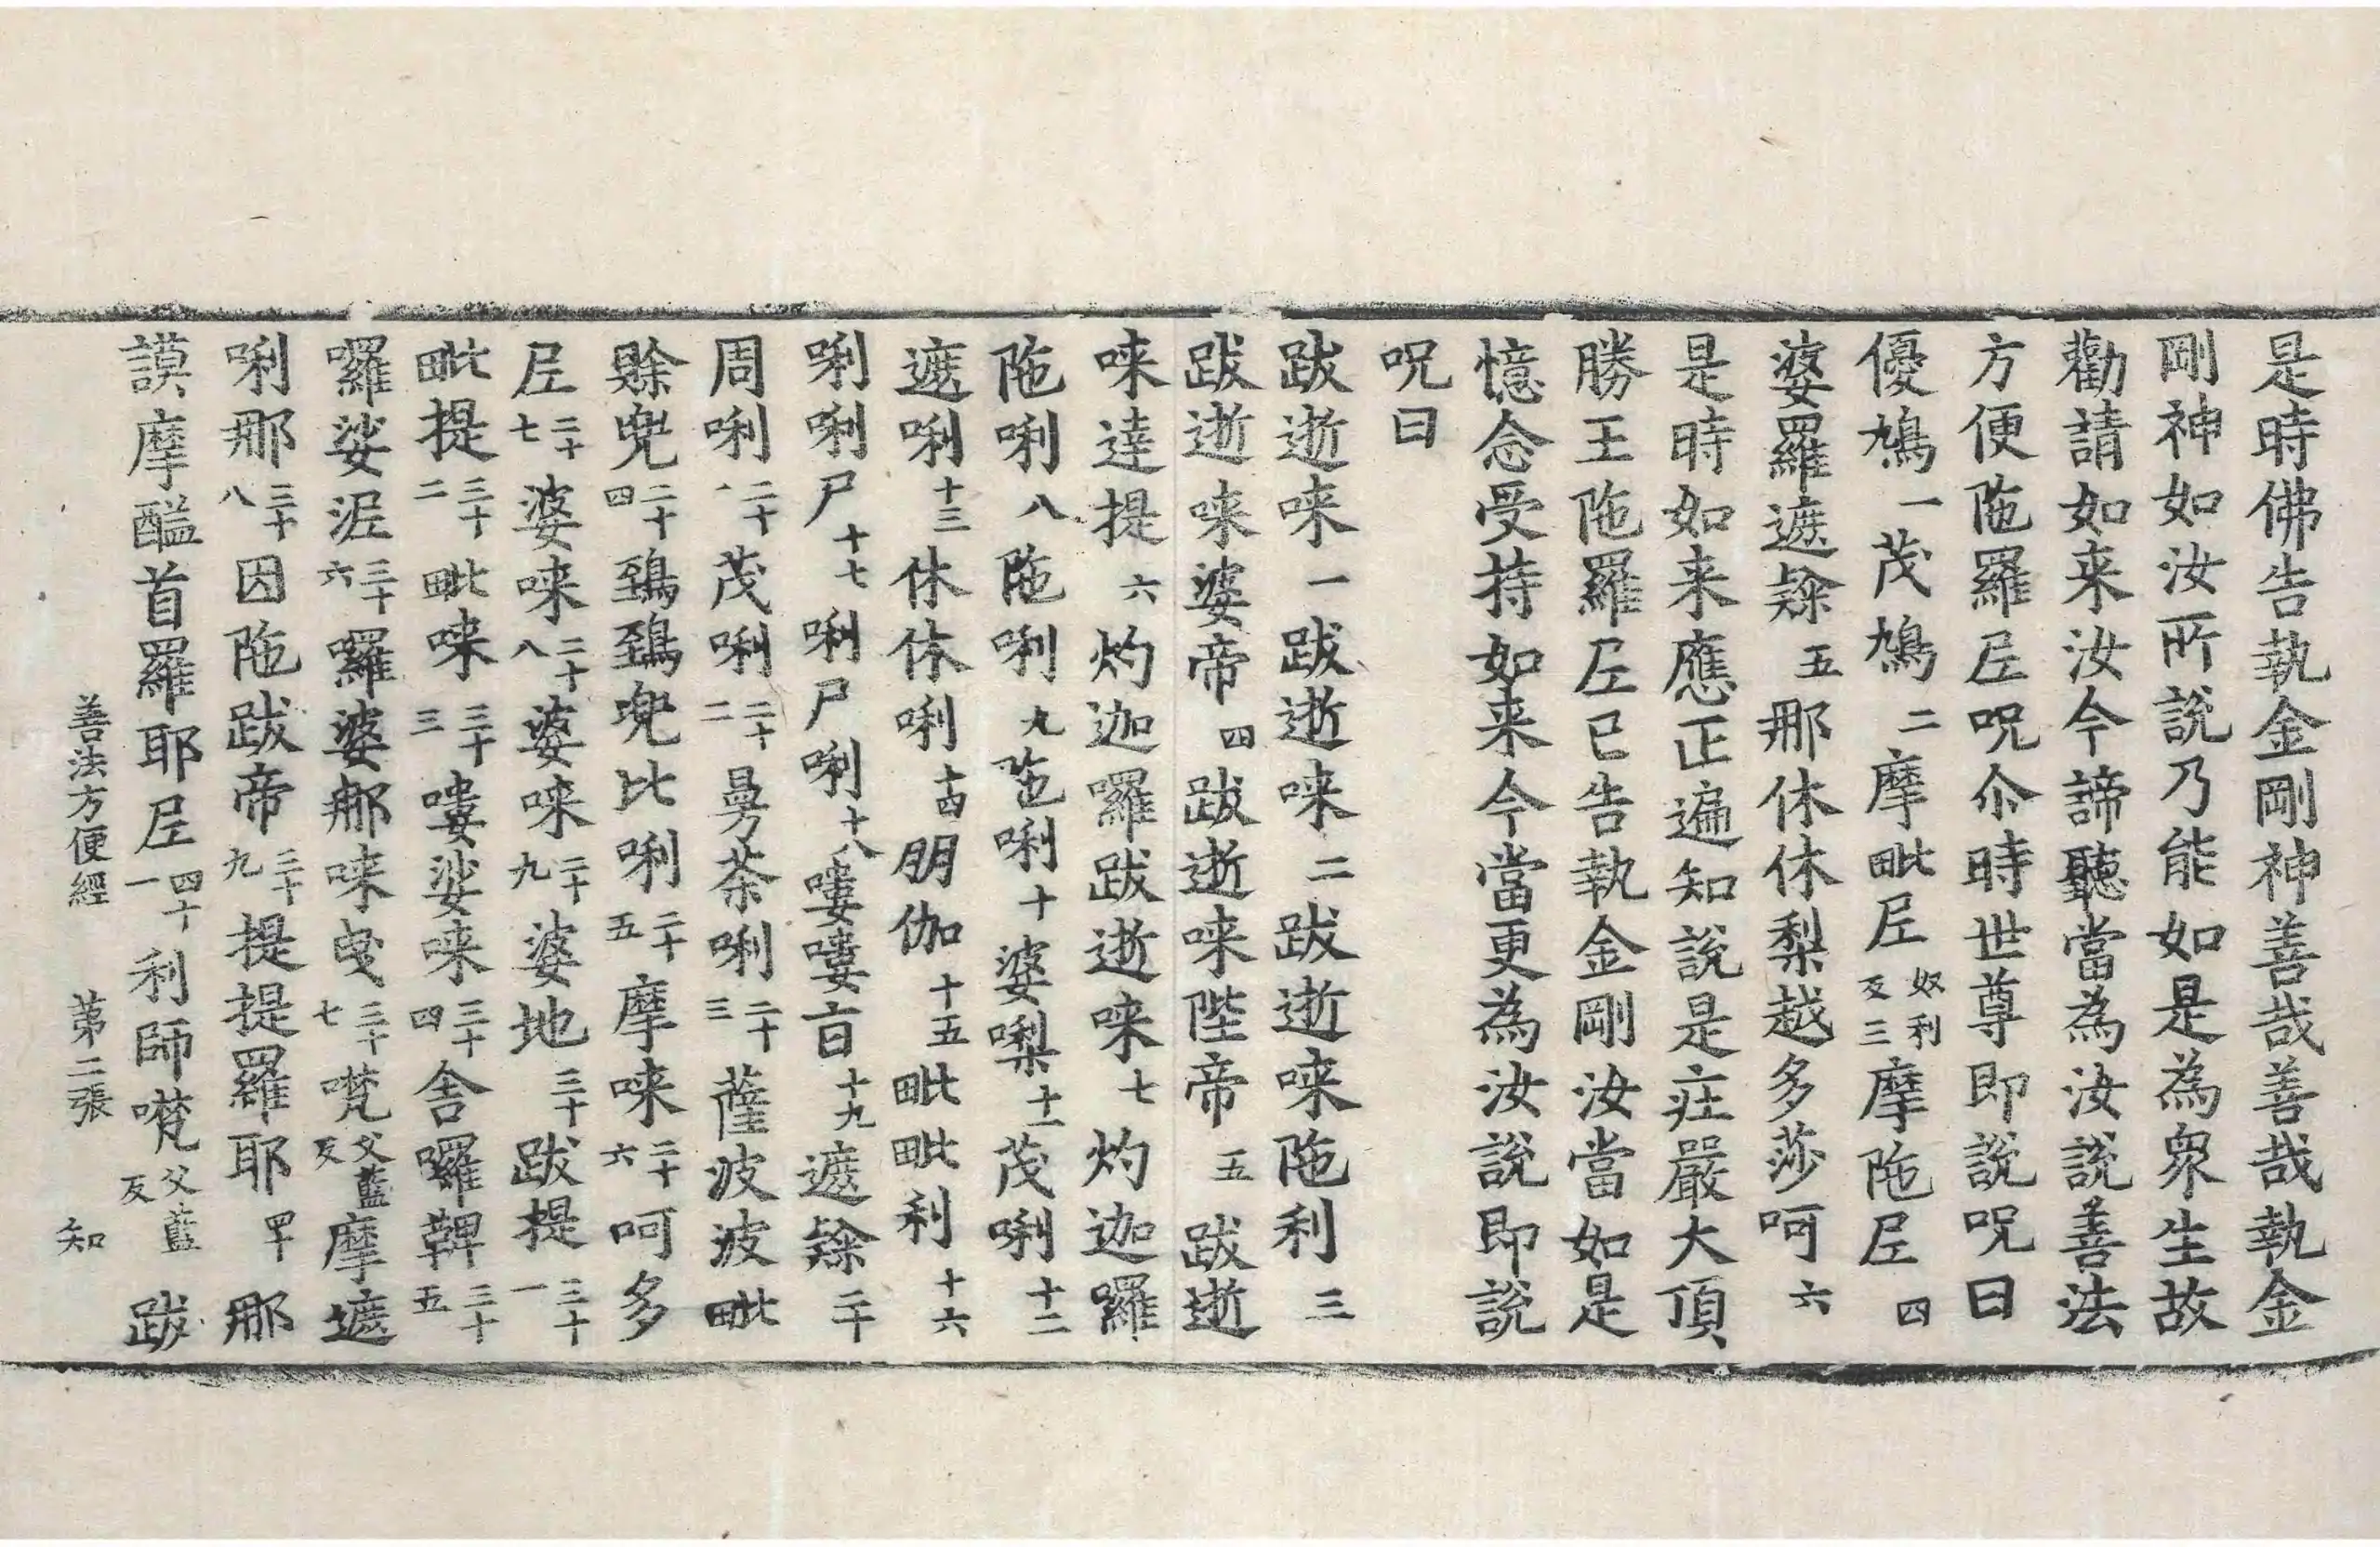 是時佛告執金剛神善哉善哉執金
剛神如汝所說乃能如是為衆生故
勸請如来汝今諦聽當為汝說善法
方便陁羅𡰱呪尒時世尊即說呪曰
優鳩一茂鳩二摩毗𡰱奴利反三摩陁𡰱四
婆羅遮𨇾五那休休梨越多莎呵六
是時如来應正遍知說是庄嚴大頂
勝王陁羅𡰱已告執金剛汝當如是
憶念受持如来今當更為汝說即說
呪曰
跋逝唻一跋逝唻二跋逝唻陁利三
跋逝唻婆帝四跋逝唻陛帝五跋逝
唻達提六灼迦囉跋逝唻七灼迦囉
陁唎八陁唎九唎十婆㗚十一茂唎十二
遮唎十三休休唎十四朋伽十五毗毗利十六
唎唎尸十七唎尸唎十八嘍嘍十九遮二十
周唎二十一茂唎二十二曼荼唎二十三薩波波毗
賒兜二十四鵄鵄兜比唎二十五摩唻二十六呵多
𡰱二十七婆唻二十八婆唻二十九婆地三十跋提三十一
毗提三十二毗唻三十三嘍娑唻三十四舍囉鞞三十五
囉娑泥三十六囉婆那唻曳三十七㘕父藍反摩遮
唎那三十八因陁跋帝三十九提提羅耶四十那
謨摩醯首羅耶𡰱四十一利師㘕父藍反跋
善法方便經 第二張 知